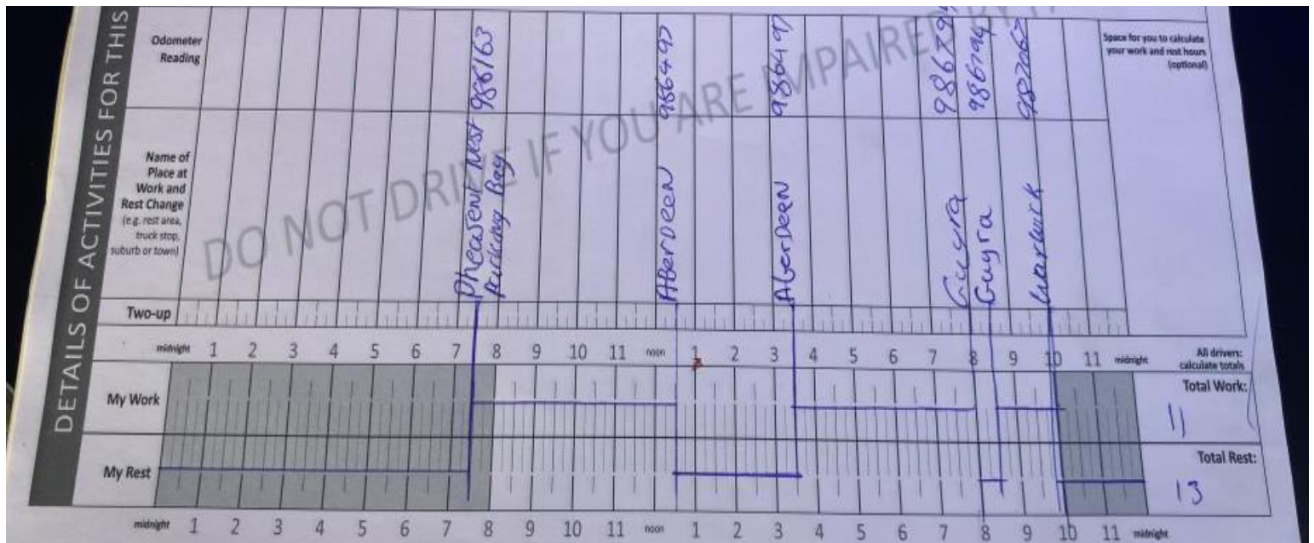 DETAILS OF ACTIVITIES FOR THIS
Odometer
Reading
986163
986497
986497
986794
Space for you to calculate
your work and rest hours
(optional)
DO NOT DRIVE IF YOU ARE IMPAIRED BY
Name of
Place at
Work and
Rest Change
(e.g. rest area,
truck stop,
suburb or town)
Pheasent Nest
Parking Bay
Aberdeen
Aberdeen
Guyra
Guyra
Warwick
Two-up
midnight 1 2 3 4 5 6 7 8 9 10 11 noon 1 2 3 4 5 6 7 8 9 10 11 midnight
All drivers:
calculate totals
My Work
Total Work:
11
My Rest
Total Rest:
13
midnight 1 2 3 4 5 6 7 8 9 10 11 noon 1 2 3 4 5 6 7 8 9 10 11 midnight